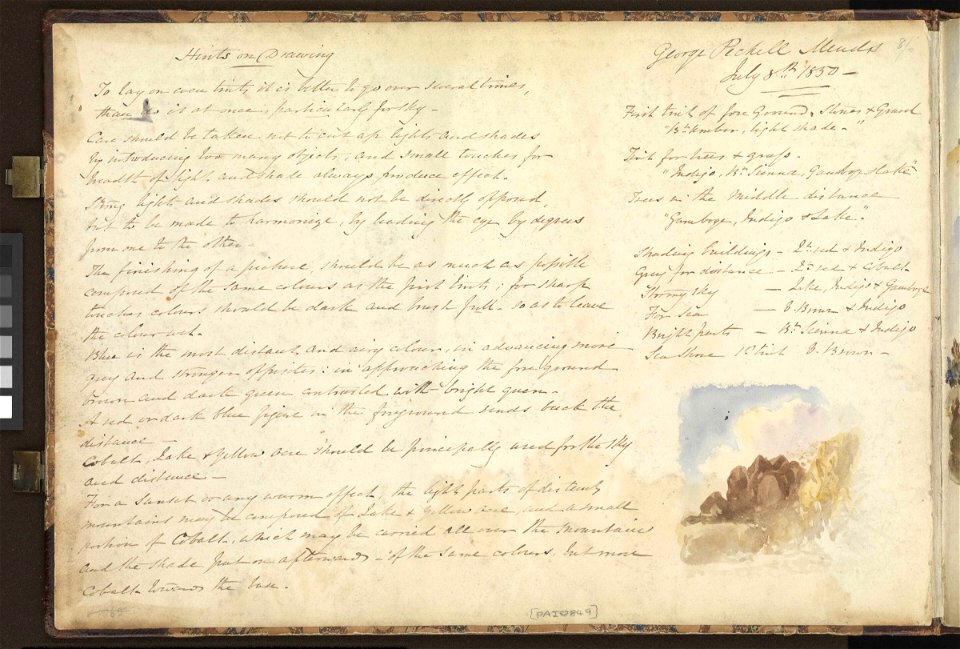 Hints on Drawing
To lay on even tints it is better to go over several times,
than do it at once, particularly for sky -
Care should be taken not to cut up lights and shades
by introducing too many objects, and small touches for
breadth of light and shade always produce effect.
Strong lights and shades should not be directly opposed
but to be made to harmonize, by leading the eye by degrees
from one to the other -
The finishing of a picture should be as much as possible
composed of the same colours as the first tints; for sharp
touches colours should be dark and brush full - so as to leave
the colour wet.
Blue is the most distant and airy colour, in advancing more
grey and stronger opposites: in approaching the fore ground
brown and dark green contrasted with bright green -
A red or dark blue figure in the foreground sends back the
distance -
Cobalt, Lake & yellow should be principally used for the sky
and distance -
For a sunset or any warm effect, the light parts of distant
mountains may be composed of Lake & yellow and a small
portion of Cobalt, which may be carried all over the mountains
and the shade put on afterwards - of the same colours, but more
Cobalt towards the base.
George Pechell Mends
July 8th 1850 -
First tint of fore Ground, Stones & Gravel
"Bt umber, light shade -"
Tint for trees & grass.
"Indigo, Bt Sienna, Gamboge & Lake"
Trees in the Middle distance
"Gamboge, Indigo & Lake."
Shading Buildings - Lt red & Indigo
Grey for distance - Lt red & Cobalt
Stormy sky - Lake, Indigo & Gamboge
For Sea - & Indigo
Bright parts - Bt Sienna & Indigo
Sea Shore 1st tint Brown -
[PAI0849]